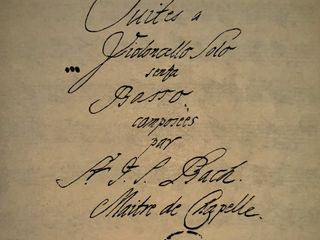 Suites a
Violoncello Solo
senza
Basso.
composées
par
Sr. J. S. Bach.
Maitre de Chapelle.